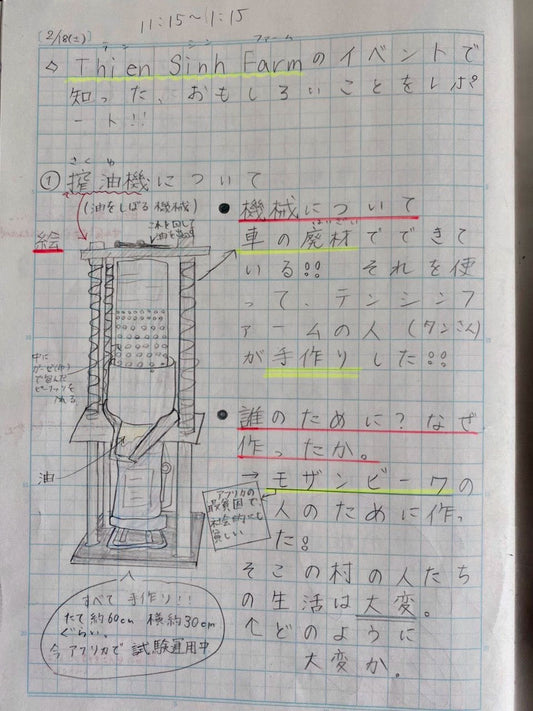 11:15〜1:15
[2/18(土)]
テン シン ファーム
◇ Thien Sinh Farmのイベントで
知った、おもしろいことをレポ
ート!!
さくゆ
① 搾油機について
(油をしぼる機械)
絵
これを回して
油を
中に
ガーゼ(布)
で包んだ
ピーナッツを
入れる
油
すべて手作り!!
たて約60cm 横約30cm
ぐらい。
今アフリカで試験運用中
● 機械について
はいざい
車の廃材でできて
いる!! それを使
って、テンシンフ
ァームの人(タンさん)
が手作りした!!
● 誰のために?なぜ
作ったか。
→ モザンビークの
人のために作っ
た!
アフリカの
最貧国で、
社会的にも
貧しい
そこの村の人たち
の生活は大変。
↑どのように
大変か。